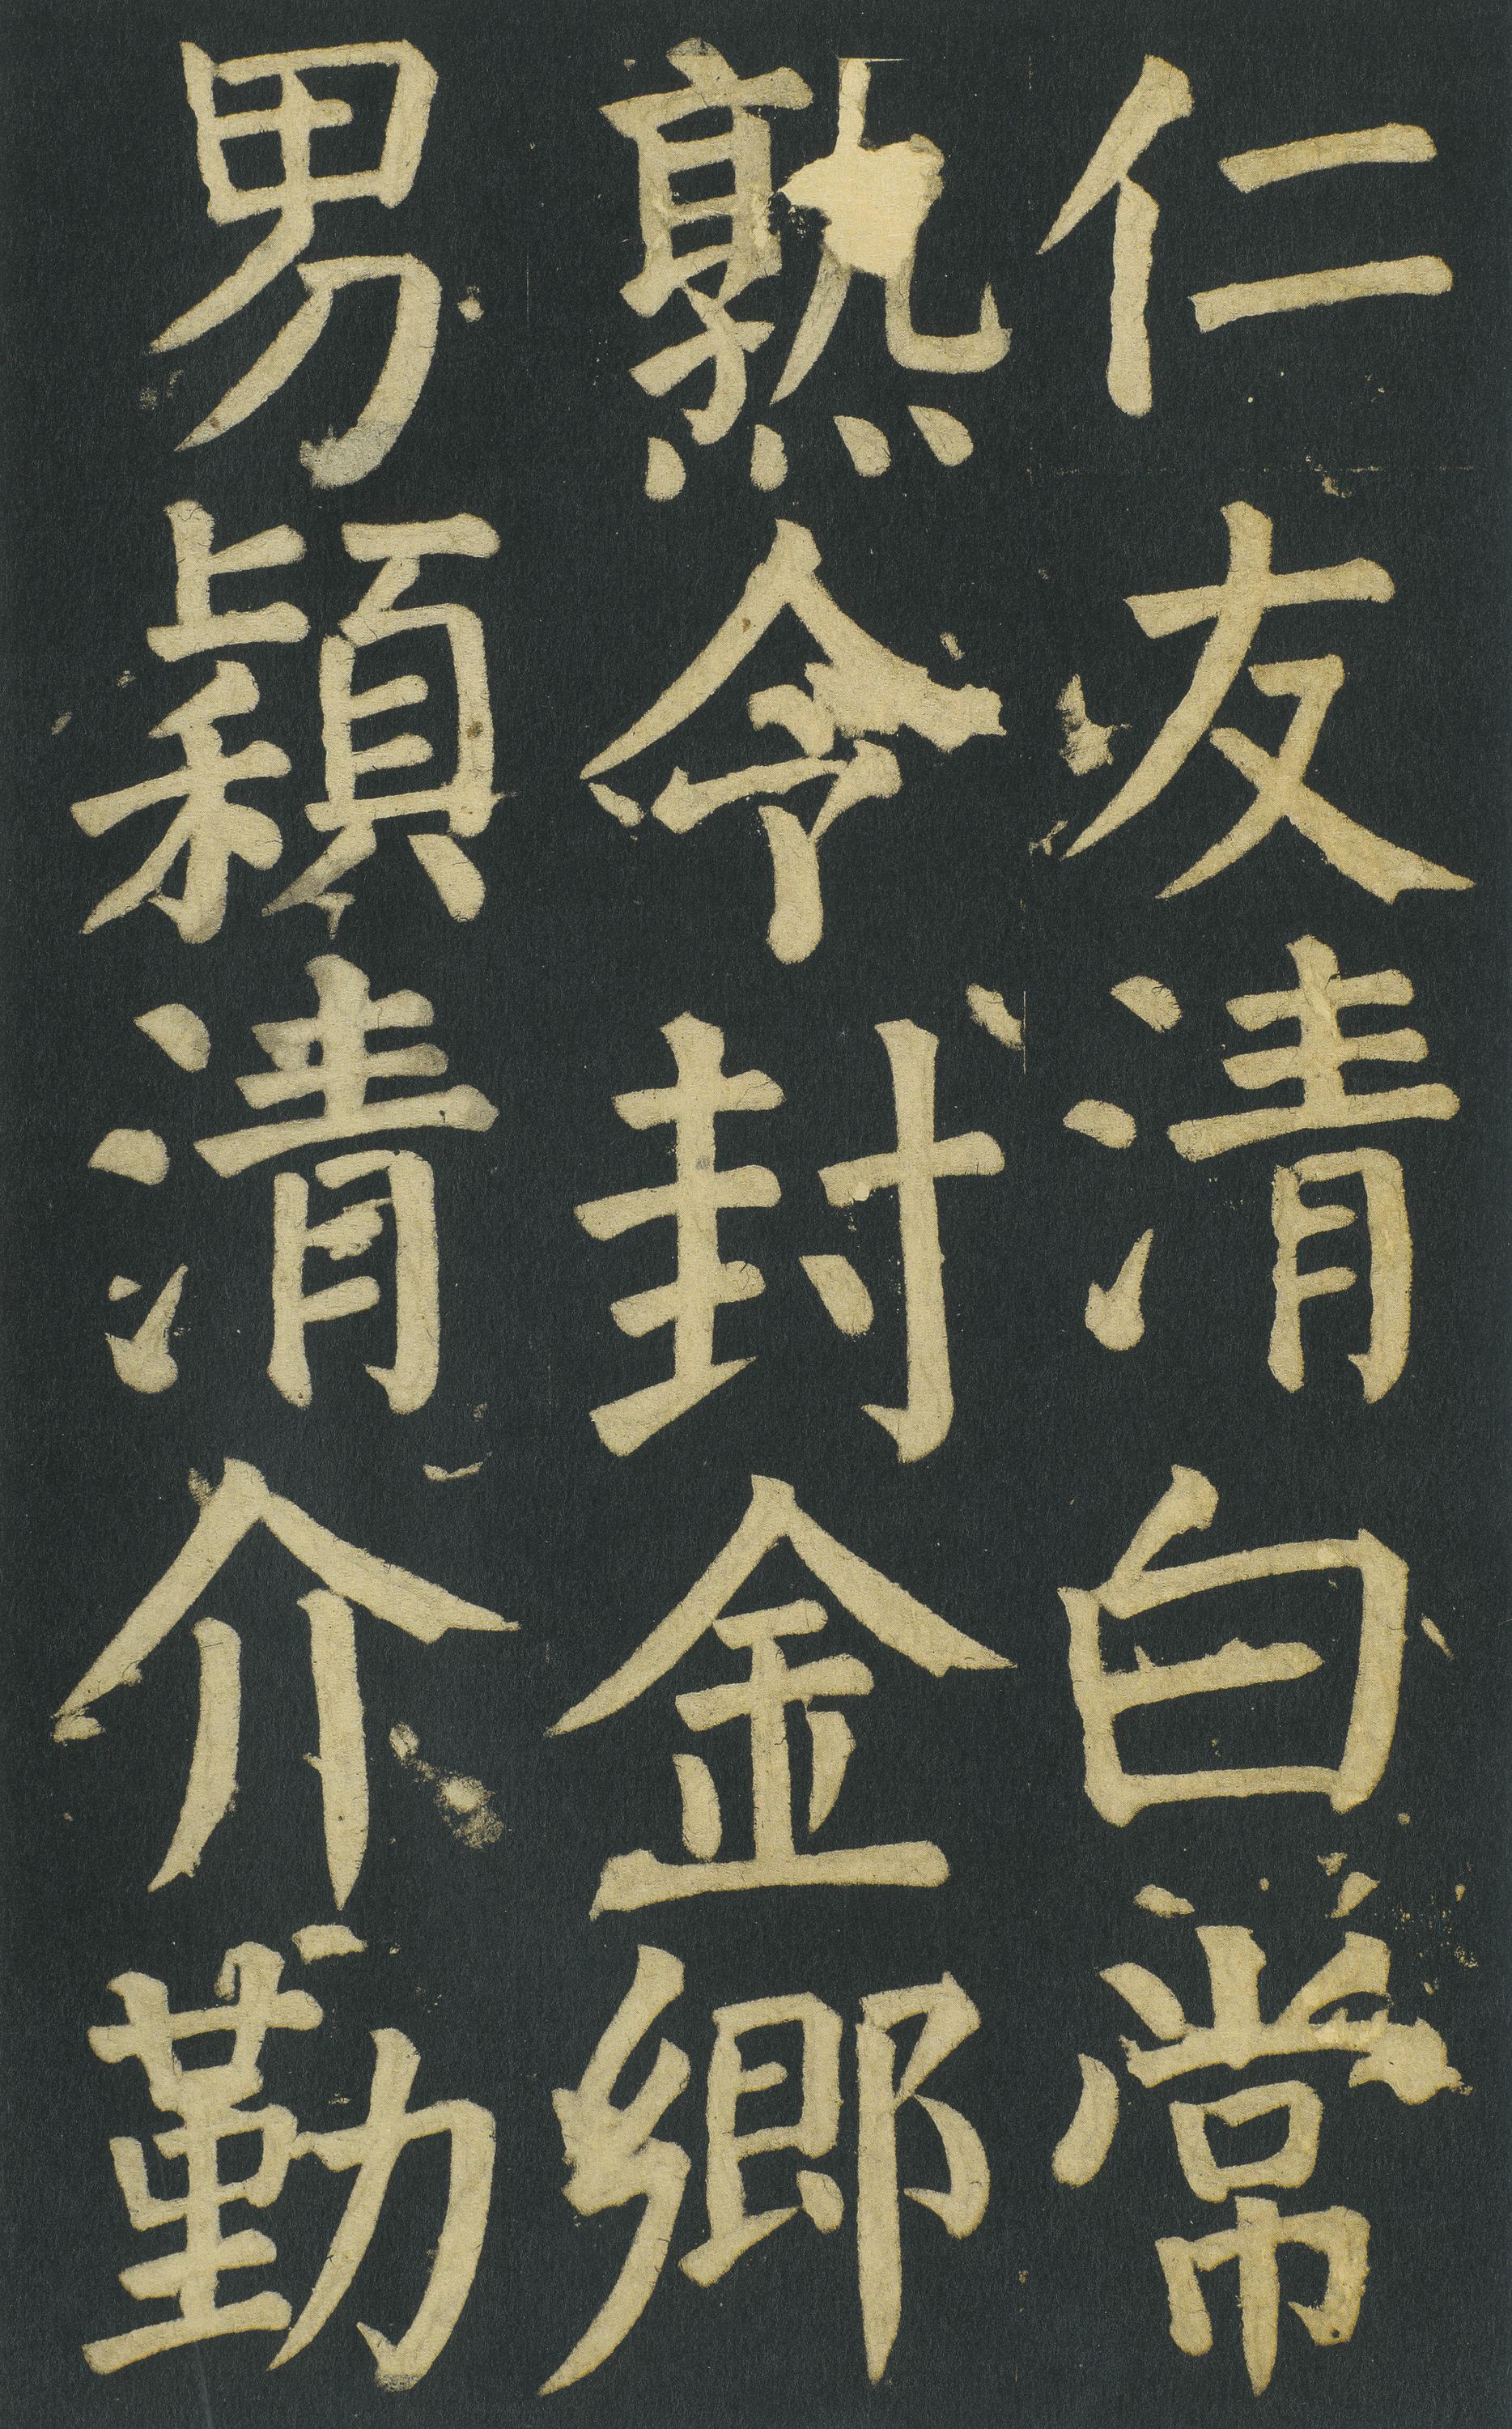 仁友清白常
熟令封金鄉
男頴清介勤